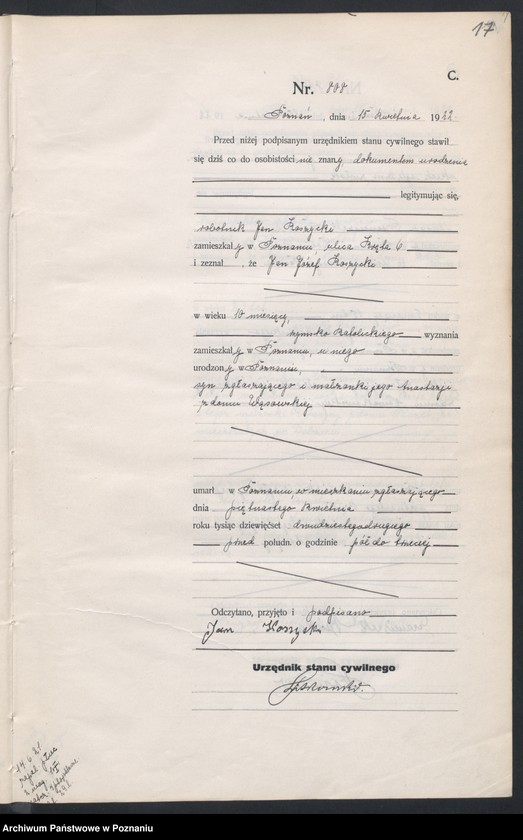 17
C.
Nr. 888
Poznań, dnia 15 kwietnia 1922
Przed niżej podpisanym urzędnikiem stanu cywilnego stawił
się dziś co do osobistości, nie znany dokumentem urodzenia
legitymując się,
robotnik Jan Koszycki
zamieszkały w Poznaniu, ulica
i zeznał, że Jan Józef Koszycki
w wieku 10 miesięcy,
rzymsko katolickiego wyznania
zamieszkały w Poznaniu, u niego
urodzony w Poznaniu,
syn zgłaszającego i małżonki jego Anastazji
z domu Wąsowskiej
umarł w Poznaniu, w mieszkaniu zgłaszającego
dnia piętnastego kwietnia
roku tysiąc dziewięćset dwudziestegodrugiego
przed połudn. o godzinie pół do trzeciej
Odczytano, przyjęto i podpisano
Jan Koszycki
Urzędnik stanu cywilnego
Archiwum Państwowe w Poznaniu